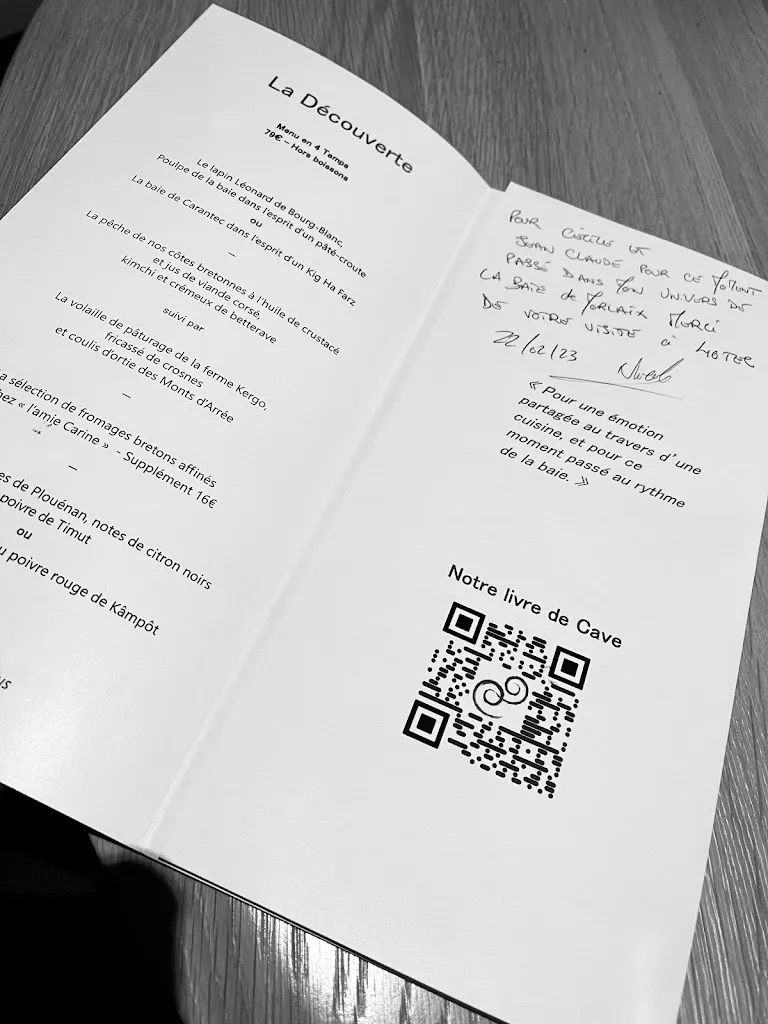 La Découverte
Menu en 4 Temps
79€ – Hors boissons
Le lapin Léonard de Bourg-Blanc,
Poulpe de la baie dans l'esprit d'un pâté-croute
ou
La baie de Carantec dans l'esprit d'un Kig Ha Farz
–
La pêche de nos côtes bretonnes à l'huile de crustacé
et jus de viande corsé,
kimchi et crémeux de betterave
suivi par
La volaille de pâturage de la ferme Kergo,
fricassé de crosnes
et coulis d'ortie des Monts d'Arrée
–
sélection de fromages bretons affinés
« l'amie Carine » - Supplément 16€
–
de Plouénan, notes de citron noirs
poivre de Timut
ou
poivre rouge de Kâmpôt
POUR CÉCILE ET
JEAN CLAUDE POUR CE MOMENT
PASSÉ DANS MON UNIVERS DE
LA BAIE DE MORLAIX MERCI
DE VOTRE VISITE à
22/02/23
« Pour une émotion
partagée au travers d'une
cuisine, et pour ce
moment passé au rythme
de la baie. »
Notre livre de Cave